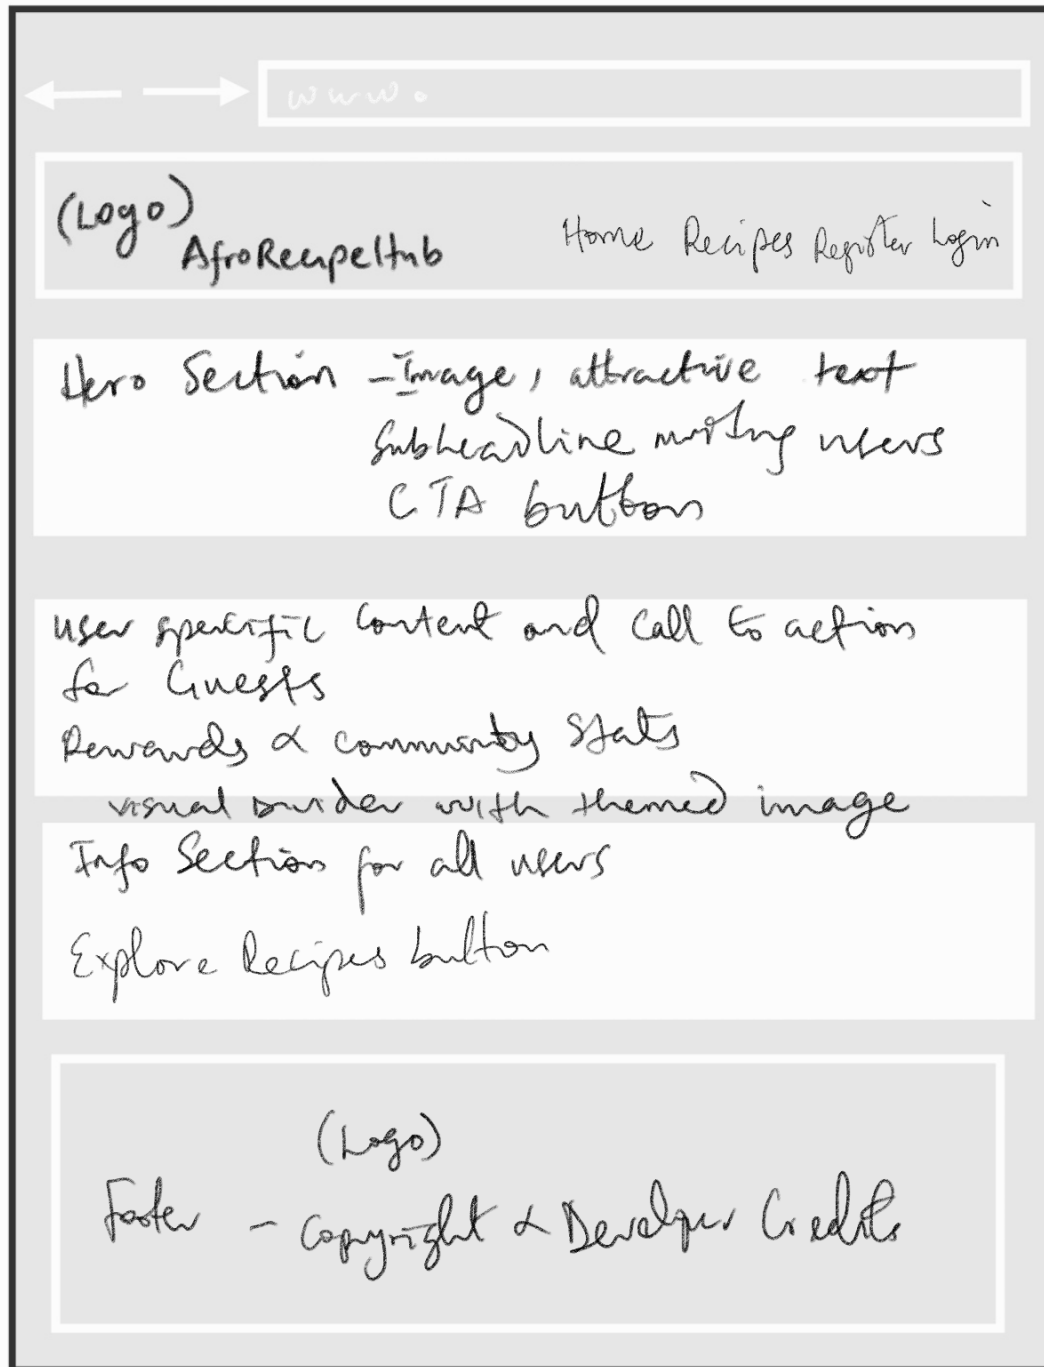 www.
(Logo)
AfroRecipeHub
Home Recipes Register Login
Hero Section - Image, attractive text
Subheadline inviting users
CTA buttons
User specific content and call to action
for Guests
Rewards & community stats
visual divider with themed image
Info Section for all users
Explore Recipes button
(Logo)
Footer - Copyright & Developer Credits